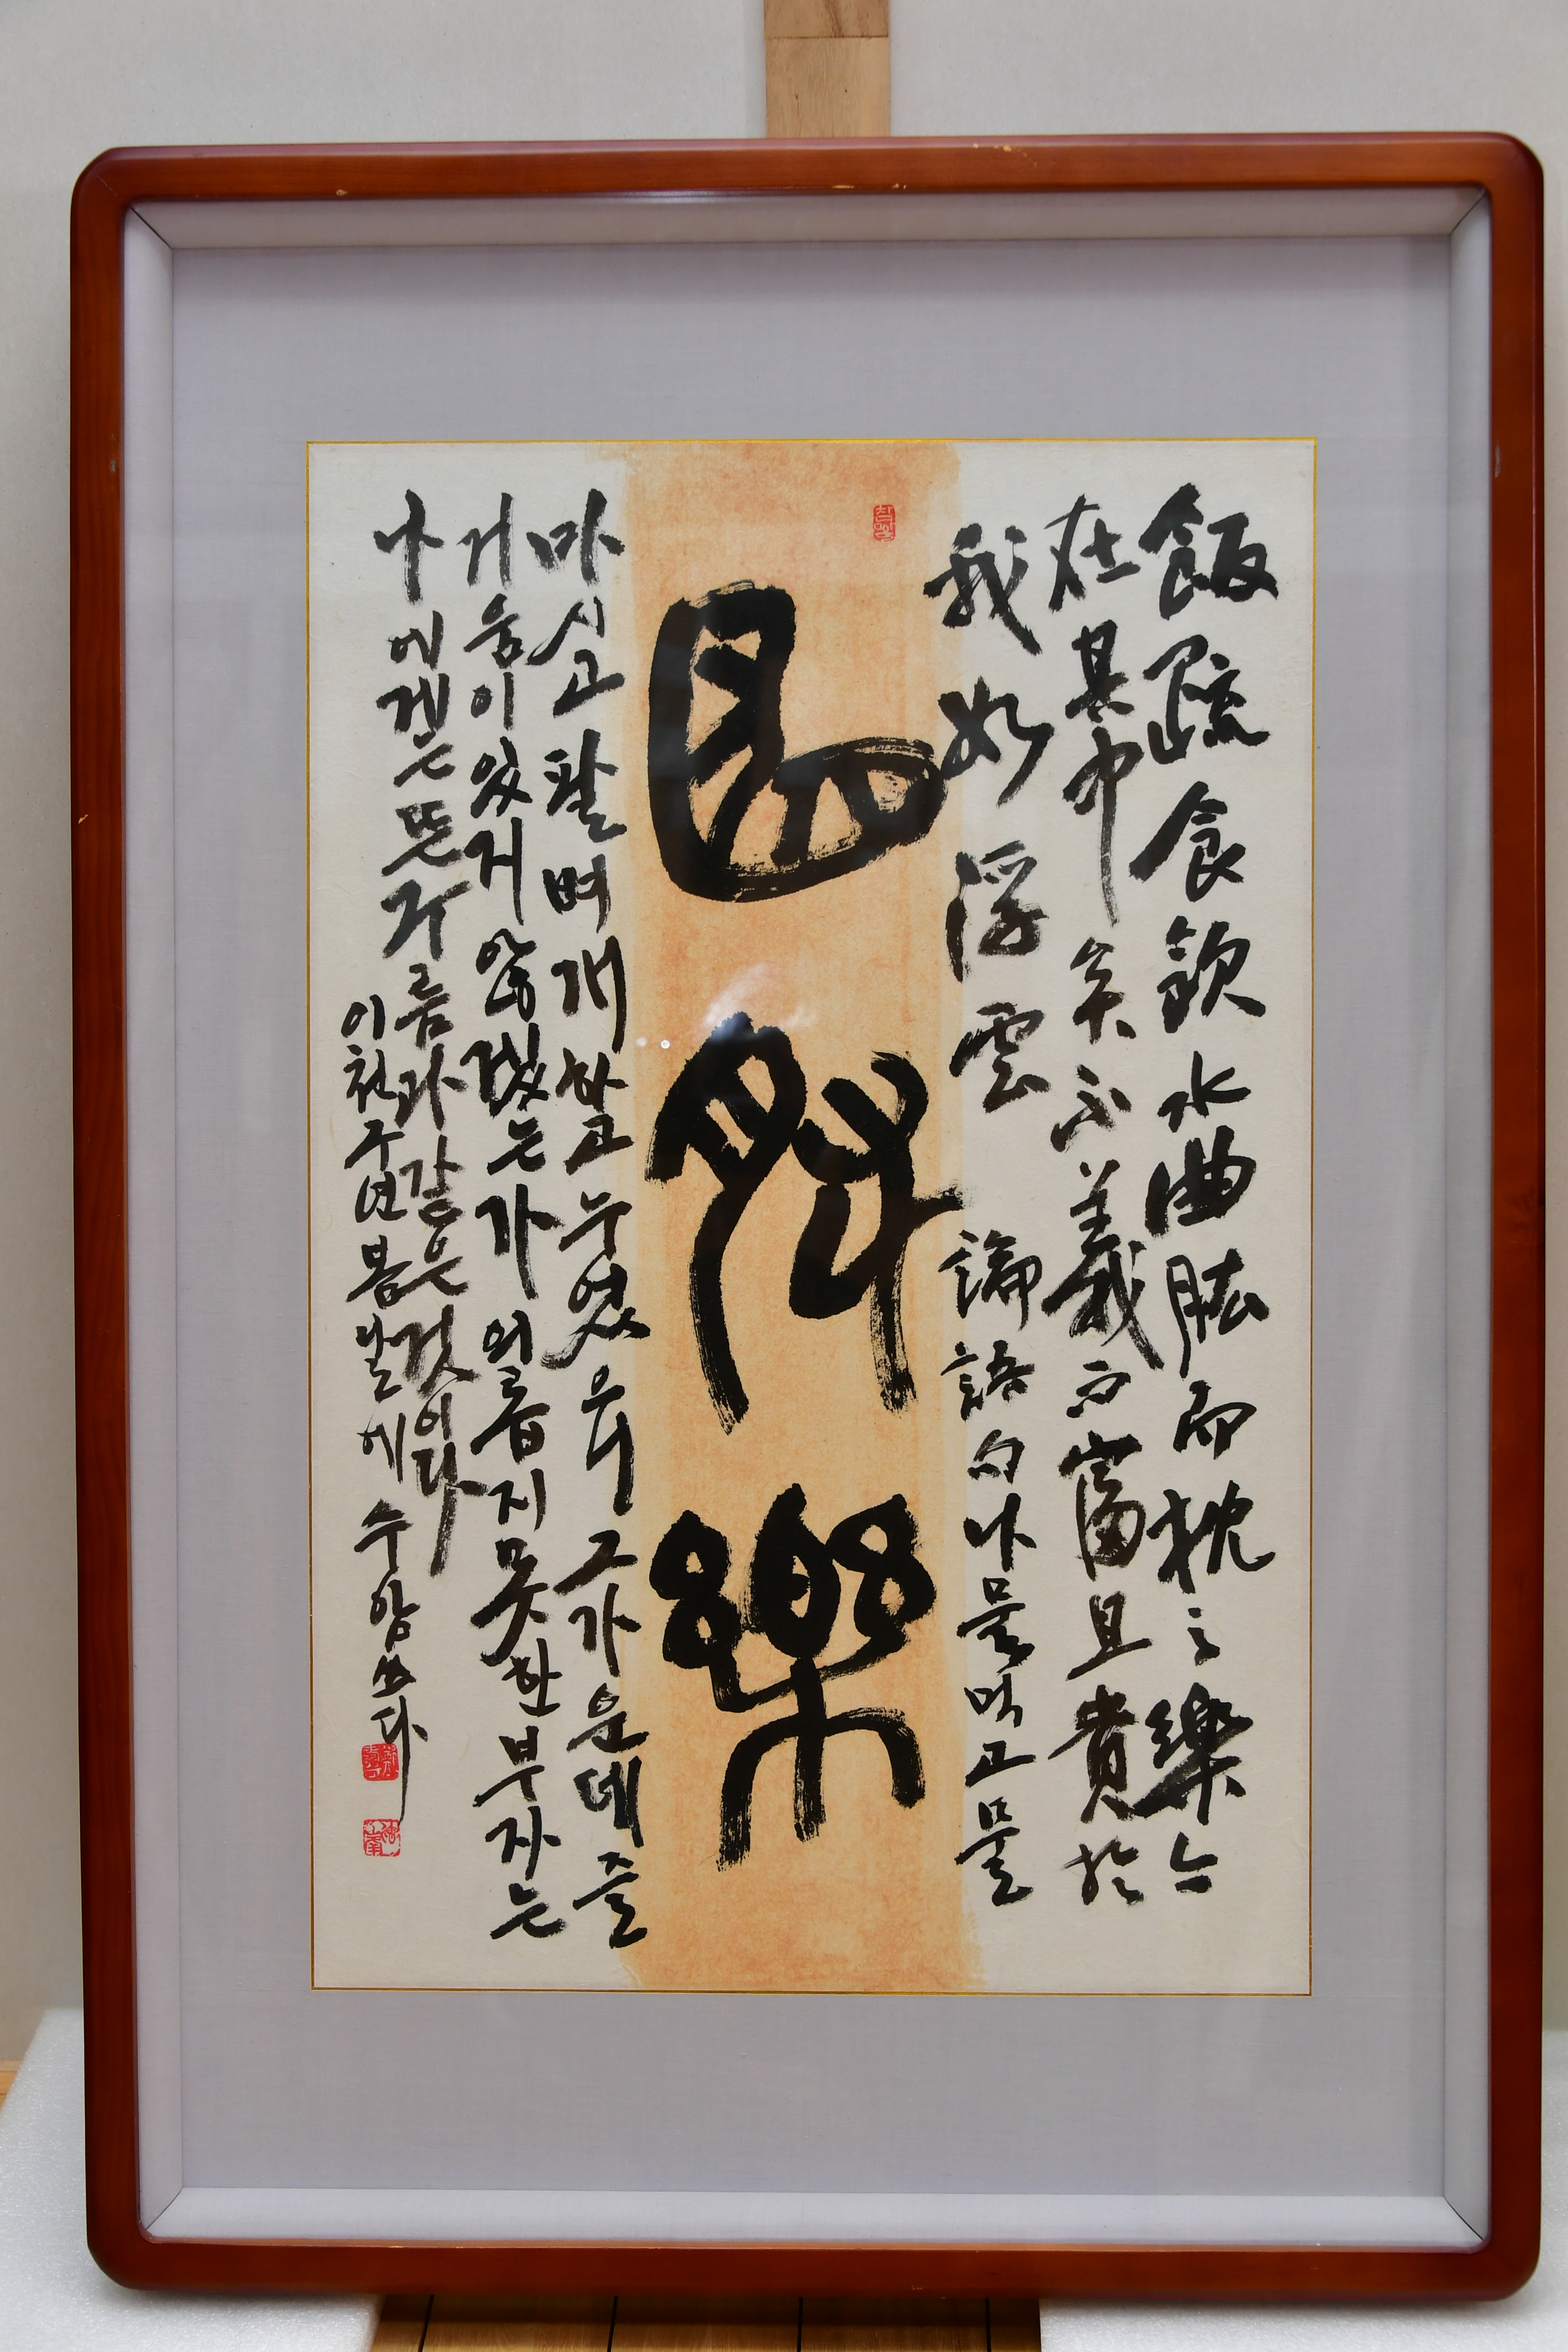 飯疏食飮水曲肱而枕之樂亦
在其中矣不義而富且貴於
我如浮雲 論語句 나물먹고물
曲肱樂
마시고 팔벼개하고 누었으니 그가운데 즐
거움이 있지 않겠는가 의롭지 못한 부자는
나에게는 뜬구름과 같은 것이다
이천구년 봄날에 수암 쓰다